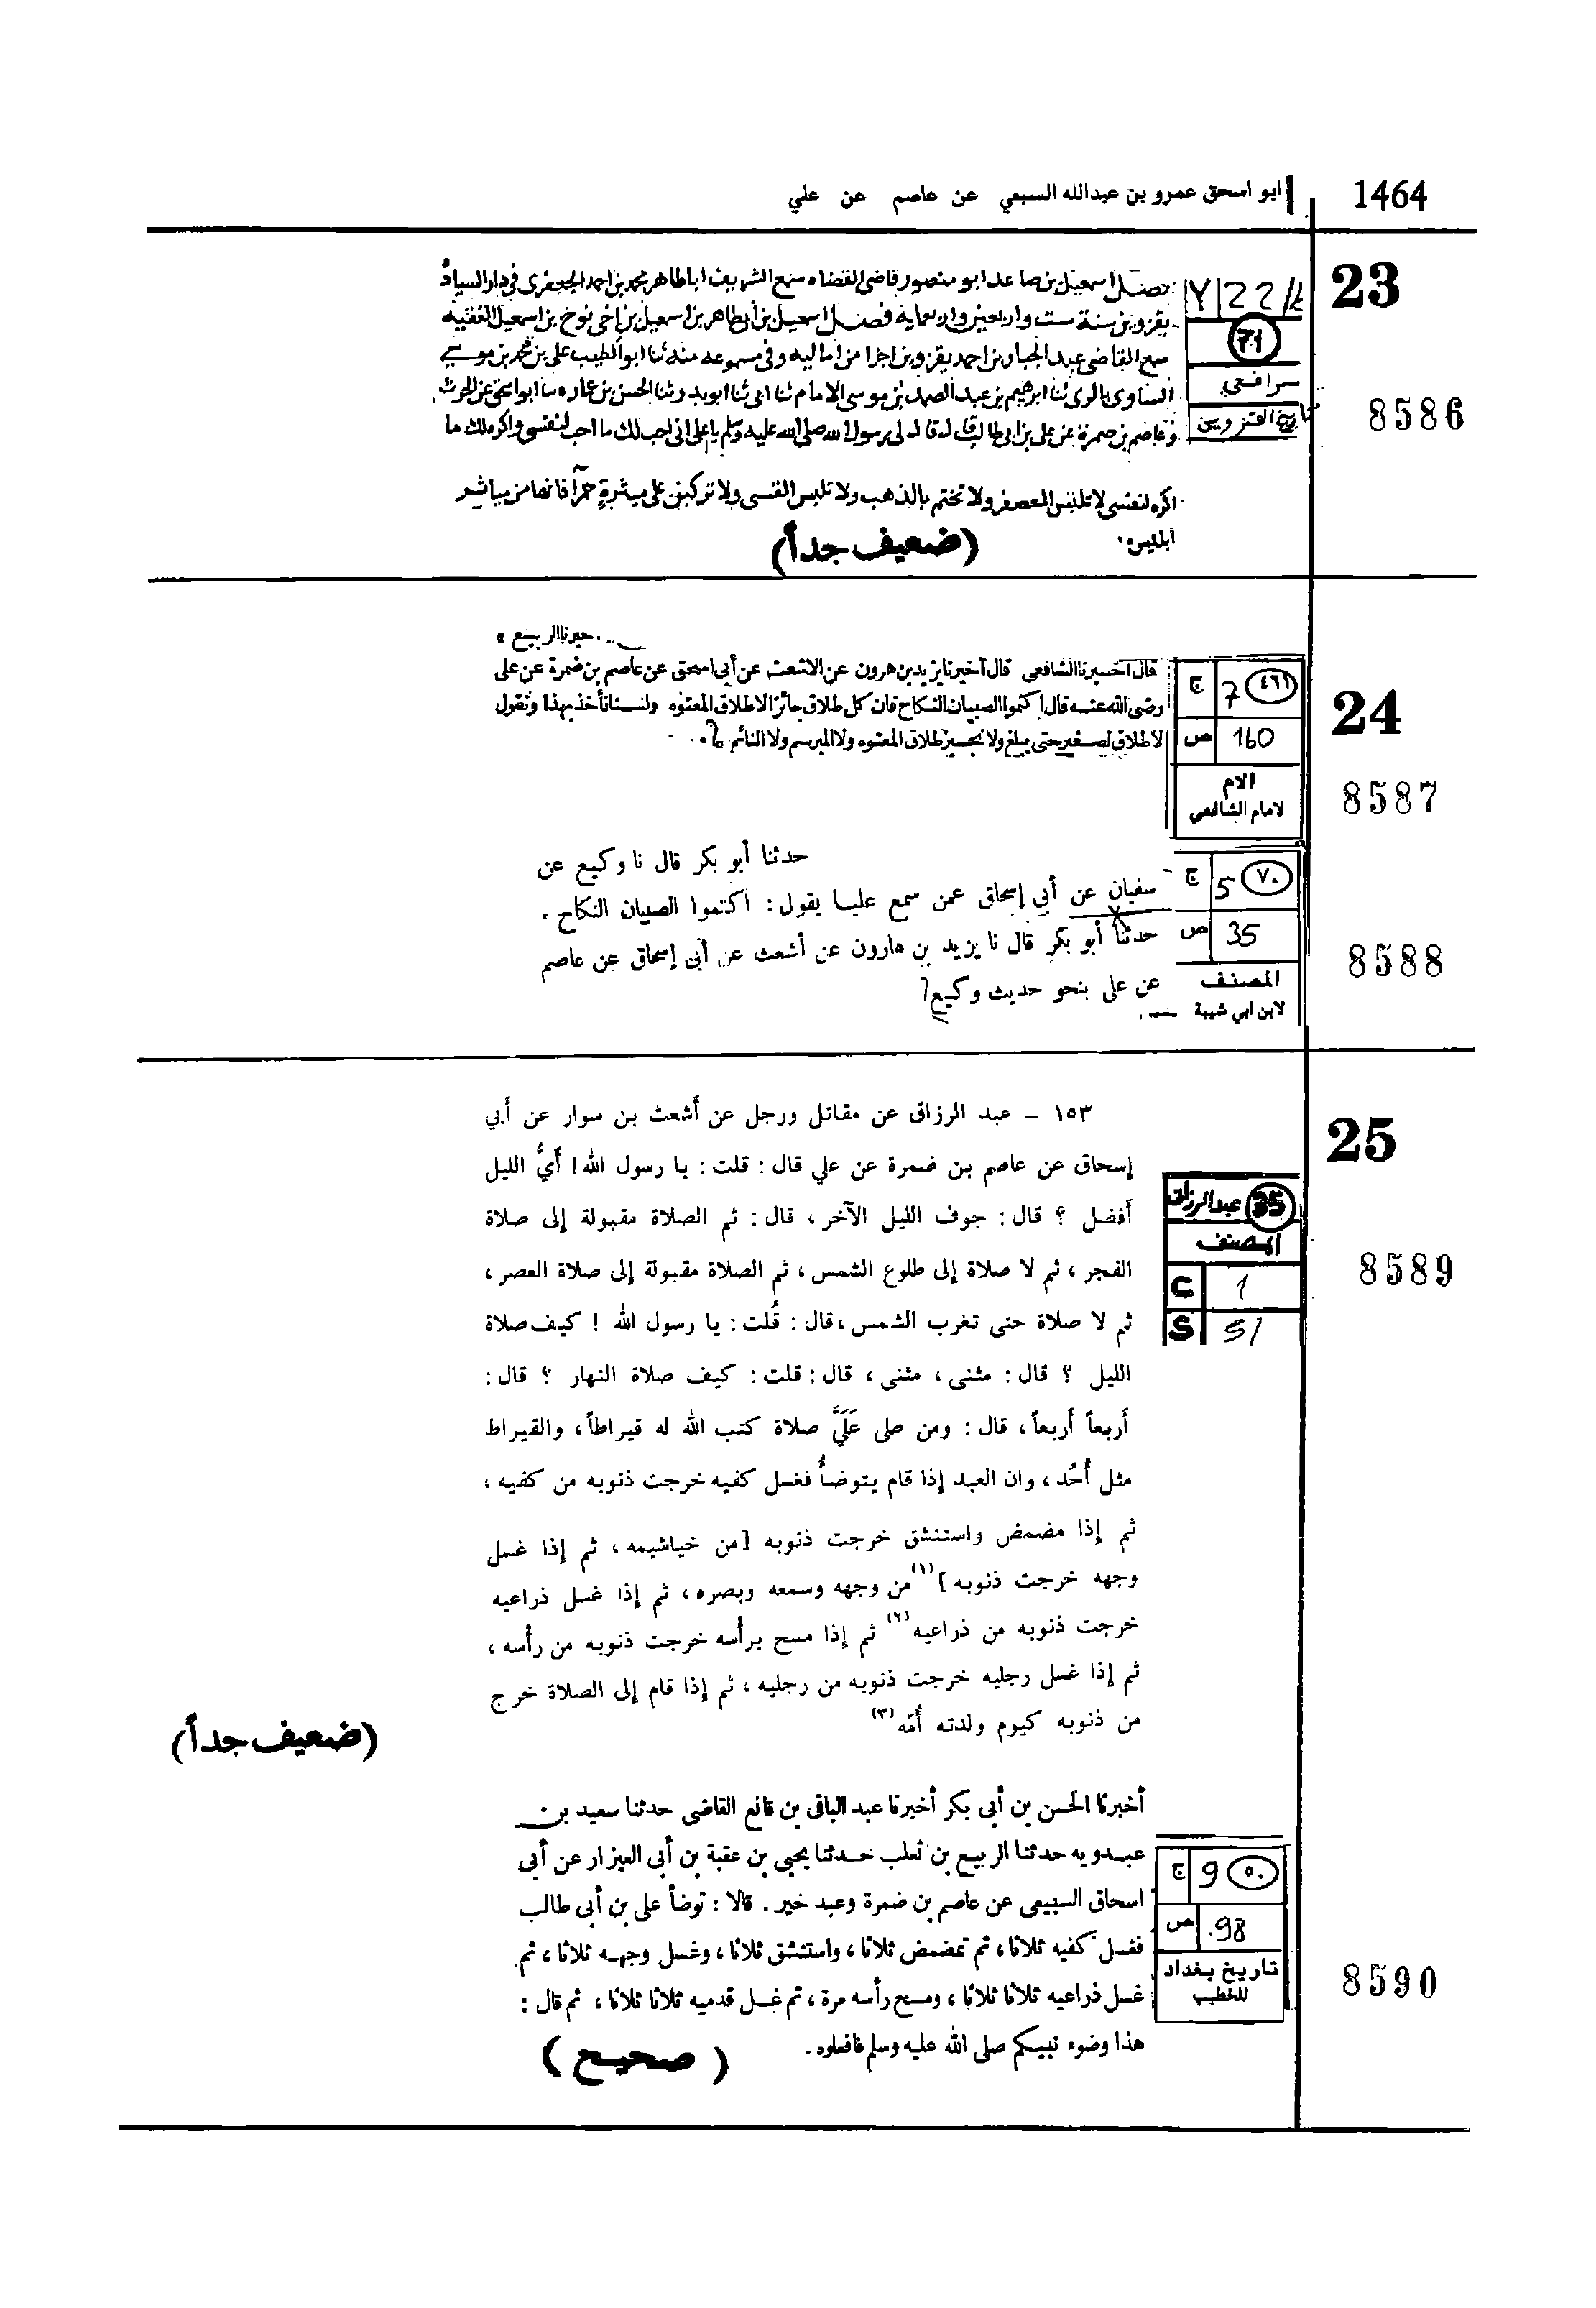 1464
ابو اسحق عمرو بن عبدالله السبعي عن عاصم عن علي
23
اسمعيل بن صاعد ابو منصور قاضي القضاه سمع الشريف ابا طاهر محمد بن احمد الجعفرى فى دار السيادة
بقزوين سنة ست واربعين واربعمايه فصل اسمعيل بن أبى طاهر بن اسمعيل بن اخى نوح بن اسمعيل الفقيه
سمع القاضى عبد الجبار بن احمد بقزوين اجزا من اماليه وفى مسموعه منه ثنا ابو الطيب على بن محمد بن موسى
بالرى ثنا ابرهيم بن عبد الصمد بن موسى الامام ثنا ابى ثنا ابو بدر ثنا الحسن بن عماره ثنا ابو اسحق عن الحرث
وعاصم بن ضمرة عن على بن ابى طالب قال قال لى رسول الله صلى الله عليه وسلم يا على انى احب لك ما احب لنفسى واكره لك ما
اكره لنفسى لا تلبس المعصفر ولا تختم بالذهب ولا تلبس القسى ولا تركبن على ميثرة حمرآ فانها من مياثر
ابليس
(ضعيف جداً)
Y 22/
71
رافعي
تاريخ القزوين
8586
24
اخبرنا الربيع
قال اخبرنا الشافعى قال أخبرنا يزيد بن هرون عن الاشعث عن أبى اسحق عن عاصم بن ضمرة عن على
رضى الله عنه قال اكتموا الصبيان النكاح فان كل طلاق جائز الاطلاق المعتوه ولسنا نأخذ بهذا ونقول
لا طلاق لصغير حتى يبلغ ولا نجيز طلاق المعتوه ولا المبرسم ولا النائم
ج 7 ٤٦١
ص 160
الام
لامام الشافعي
8587
حدثنا أبو بكر قال نا وكيع عن
سفيان عن أبي إسحاق عمن سمع عليا يقول : اكتموا الصبيان النكاح .
حدثنا أبو بكر قال نا يزيد بن هارون عن أشعث عن أبي إسحاق عن عاصم
عن على بنحو حديث وكيع
ج 5 ٧٠
ص 35
المصنف
لابن ابي شيبة
8588
25
١٥٣ – عبد الرزاق عن مقاتل ورجل عن أشعث بن سوار عن أبي
إسحاق عن عاصم بن ضمرة عن علي قال : قلت : يا رسول الله! أيُّ الليل
أفضل ؟ قال : جوف الليل الآخر ، قال : ثم الصلاة مقبولة إلى صلاة
الفجر ، ثم لا صلاة إلى طلوع الشمس ، ثم الصلاة مقبولة إلى صلاة العصر ،
ثم لا صلاة حتى تغرب الشمس ، قال : قُلت : يا رسول الله ! كيف صلاة
الليل ؟ قال : مثنى ، مثنى ، قال : قلت : كيف صلاة النهار ؟ قال :
أربعاً أربعاً ، قال : ومن صلى عَلَيَّ صلاة كتب الله له قيراطاً ، والقيراط
مثل أُحُد ، وان العبد إذا قام يتوضأُ فغسل كفيه خرجت ذنوبه من كفيه ،
ثم إذا مضمض واستنشق خرجت ذنوبه [من خياشيمه ، ثم إذا غسل
وجهه خرجت ذنوبه ] (١) من وجهه وسمعه وبصره ، ثم إذا غسل ذراعيه
خرجت ذنوبه من ذراعيه (٢) ثم إذا مسح برأسه خرجت ذنوبه من رأسه ،
ثم إذا غسل رجليه خرجت ذنوبه من رجليه ، ثم إذا قام إلى الصلاة خرج
من ذنوبه كيوم ولدته أُمّه (٣)
(ضعيف جداً)
35 عبدالرزاق
المصنف
C 1
S 51
8589
أخبرنا الحسن بن أبي بكر أخبرنا عبد الباقى بن قانع القاضى حدثنا سعيد بن
عبدويه حدثنا الربيع بن ثعلب حدثنا يحيى بن عقبة بن أبى العيزار عن أبى
اسحاق السبيعى عن عاصم بن ضمرة وعبد خير . قالا : توضأ على بن أبى طالب
فغسل كفيه ثلاثا ، ثم تمضمض ثلاثا ، واستنشق ثلاثا ، وغسل وجهه ثلاثا ، ثم
غسل ذراعيه ثلاثا ثلاثا ، ومسح رأسه مرة ، ثم غسل قدميه ثلاثا ثلاثا ، ثم قال :
هذا وضوء نبيكم صلى الله عليه وسلم فافعلوه .
( صحيح )
ج 9 ٥٠
ص 98
تاريخ بغداد
للخطيب
8590